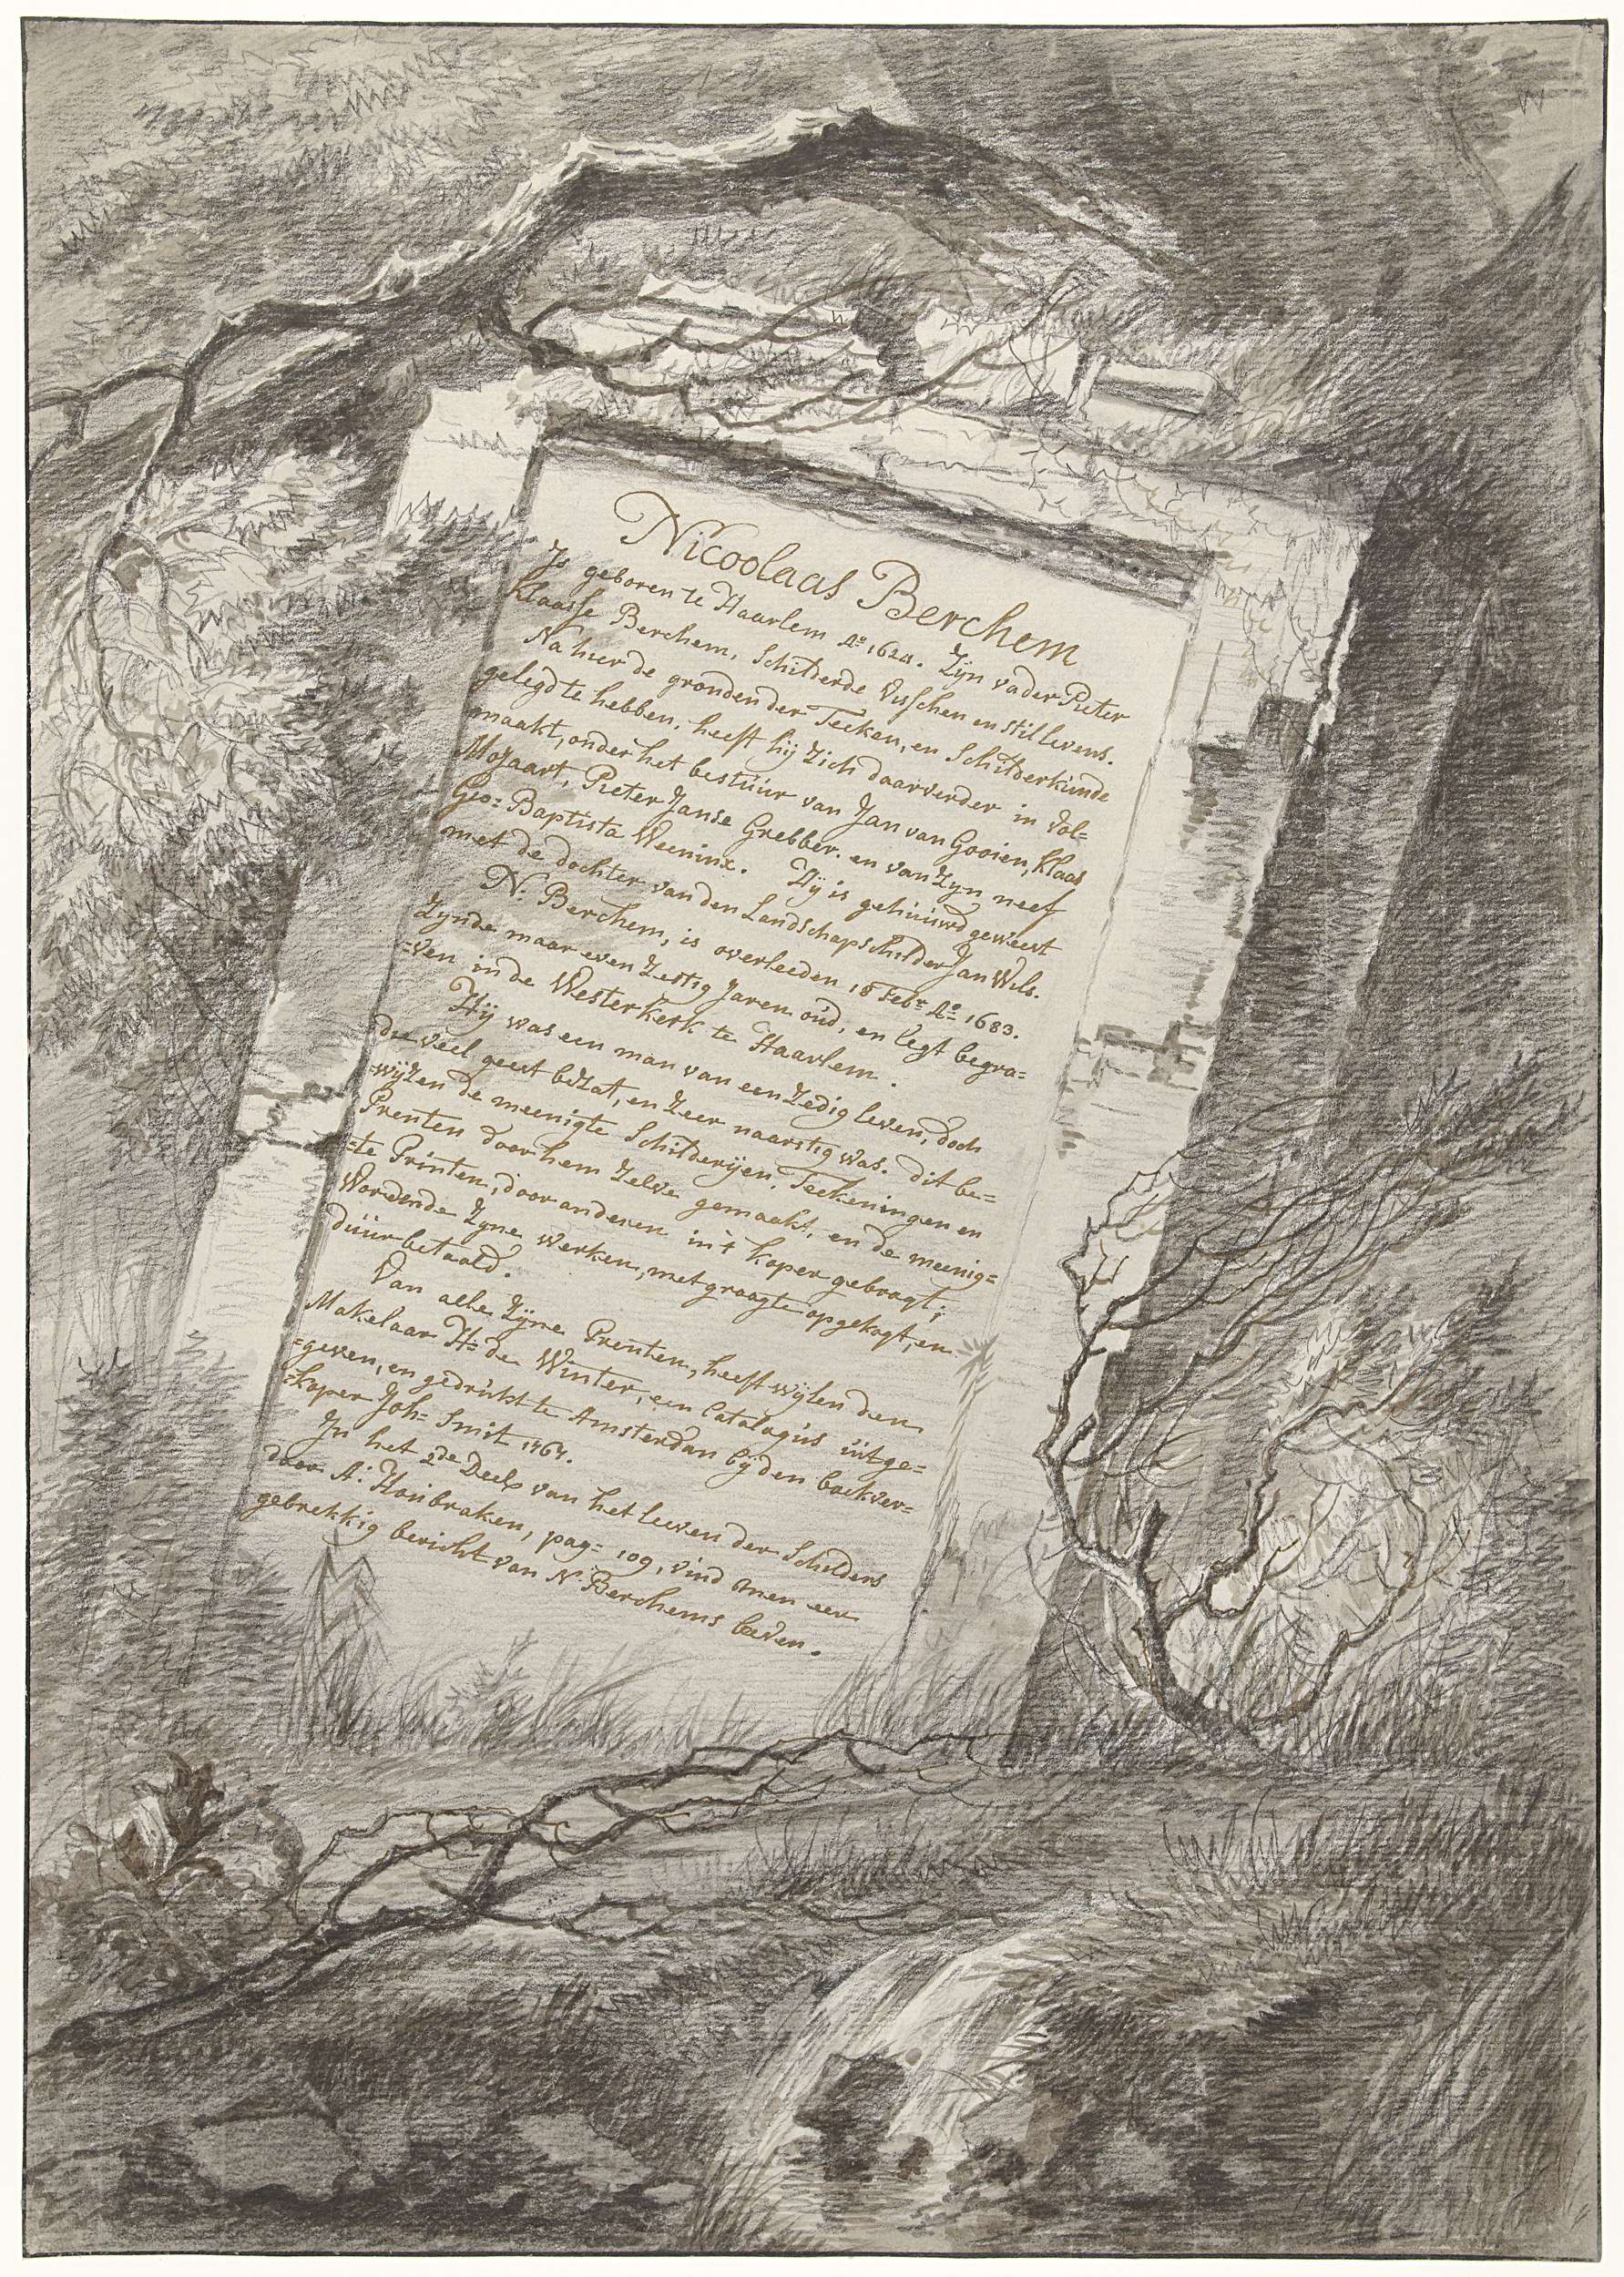 Nicoolaas Berchem
Is geboren te Haarlem Ao 1624. Zijn vader Pieter
Klaasse Berchem, Schilderde Visschen en stillevens.
Na hier de gronden der Teeken, en Schilderkunde
gelegd te hebben, heeft hij zich daar verder in vol=
maakt, onder het bestüür van Jan van Gooien, Klaas
Moyaart, Pieter Janse Grebber. en van Zyn neef
Gio= Baptista Weeninx. Hij is gehüüwd geweest
met de dochter van den Landschapschilder Jan Wils.
N: Berchem, is overleeden 18 Febr Ao 1683.
Zynde maar even Zestig Jaren oüd, en legt begra=
=ven in de Westerkerk te Haarlem.
Hij was een man van een Zedig leven, doch
die veel geest bezat, en Zeer naarstig was. dit be=
=wijzen de meenigte Schilderijen, Teekeningen en
Prenten door hem Zelve gemaakt, en de meenig=
=te Printen, door anderen int koper gebragt;
Wordende Zyne werken, met graagte opgekogt, en
düür betaald.
Van alle Zijne Prenten, heeft wijlen den
Makelaar H= de Winter, een Catalogüs üitge=
=geven, en gedrükt te Amsterdan bij den boekver=
=koper Joh= Smit 1767.
In het 2de Deel van het leeven der Schilders
door A: Hoübraken, pag= 109, vind men een
gebrekkig bericht van N: Berchems leeven.